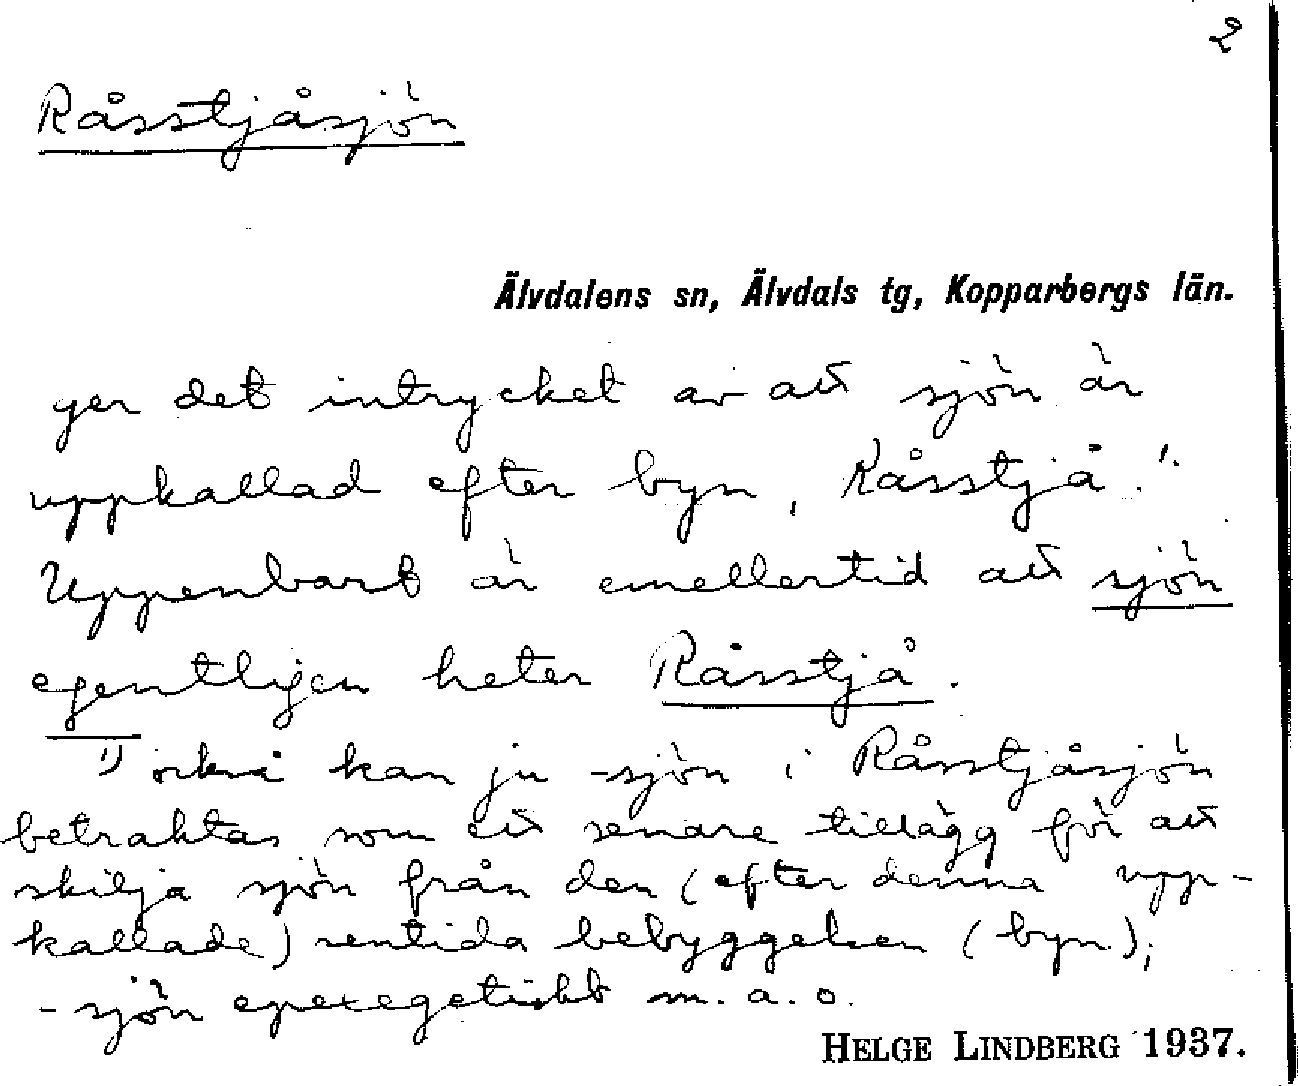 2
Råsstjåsjön
Älvdalens sn, Älvdals tg, Kopparbergs län.
ger det intrycket av att sjön är
uppkallad efter byn, Råsstjå!
Uppenbart är emellertid att sjön
egentligen heter Råsstjå.
1) också kan ju -sjön i Råsstjåsjön
betraktas som ett senare tillägg för att
skilja sjön från den (efter denna upp-
kallade) sentida bebyggelsen (byn);
-sjön epexegetiskt m.a.o.
HELGE LINDBERG 1937.